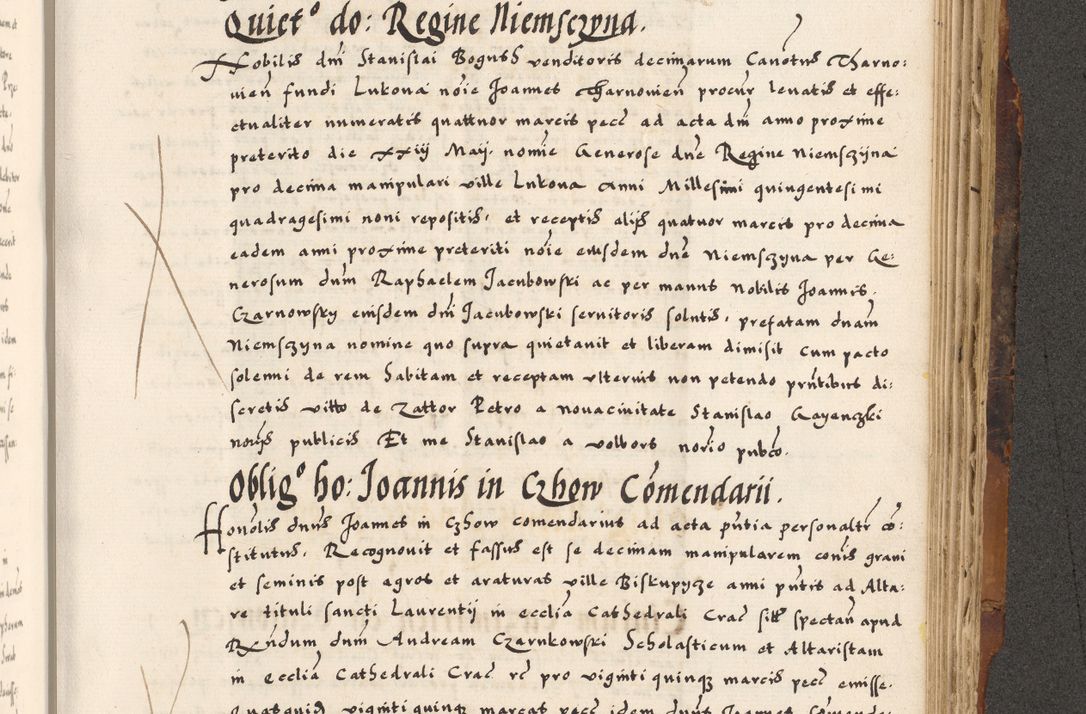 Quiet° do: Regine Niemsczyna.
Nobilis dm̄ Stanislai Bogusß venditoris decimarum Canotus Tharno:
uien̄ fundi Lukova nōie Joannes Tharnouien̄ procur̄ levatis et effe:
ctualiter numeratis quattuor marcis pecc̄ ad acta dm̄ anno proxime
preterito die xxiij Maij. nomine Generose dne Regine Niemsczyna
pro decima manipulari ville Lukova anni Millesimi quingentesimi
quadragesimi noni repositis, et receptis alijs quatuor marcis pro decima
eadem anni proxime preteriti nōie eiusdem dne Niemsczyna per Ge:
nerosum dnm Raphaelem Jacubowski ac per manus nobilis Joannis
Czarnowsky eiusdem dni Jacubowski servitoris solutis, prefatam dnam
Niemsczyna nomine quo supra quietavit et liberam dimisit cum pacto
solemni de rem habitam et receptam ulterius non petendo prn̄tibus di:
scretis vitto de Zattor Petro a novacivitate Stanislao Gayenczki
norijs publicis Et me Stanislao a volbors norio pubco.
Oblig° ho: Joannis in Czhow Comendarii.
Honolis dnus Joannes in Czhow comendarius ad acta pn̄tia personaltr̄ cō:
stitutus, Recognovit et fassus est se decimam manipularem conis grani
et seminis post agros et araturas ville Biskupycze anni pn̄tis ad Alta:
re tituli sancti Laurentij in ecclia Cathedrali Crac̄ sitt̄ spectan̄ apud
Rndum dnm Andream Czarnkowski Scholasticum et Altaristam
in ecclia Cathedrali Crac̄ rc̄ pro viginti quinq3 marcis pecc̄ emisse.
Quasquid viginti quinq3 marcas pecc̄ idem dnus Joannes Comenda: